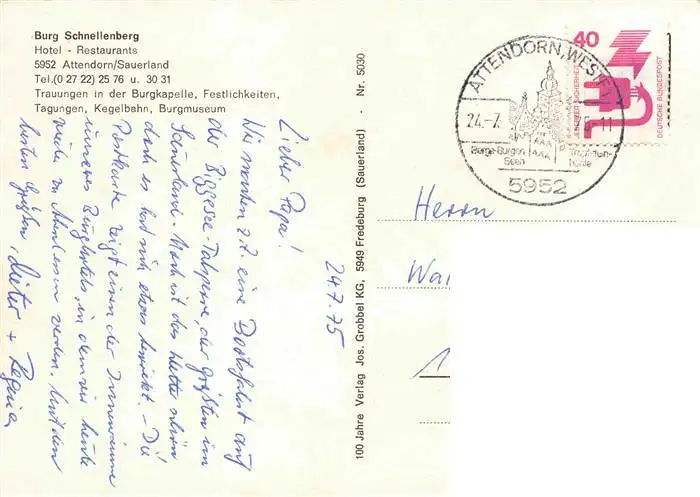 Burg Schnellenberg
Hotel - Restaurants
5952 Attendorn/Sauerland
Tel.(0 27 22) 25 76 u. 30 31
Trauungen in der Burgkapelle, Festlichkeiten,
Tagungen, Kegelbahn, Burgmuseum
24.7.75
Lieber Papa!
Wir machen z.Z. eine Bootsfahrt auf
der Biggesee-Talsperre, der größten im
Sauerland. Noch ist das Wetter schön
doch es hat sich etwas bewölkt. - Die
Postkarte zeigt einen der Innenräume
unseres Burghotels, in dem wir heute
zu Abend essen werden. Mit den
besten Grüßen, Dieter + Regina
100 Jahre Verlag Jos. Grobbel KG, 5949 Fredeburg (Sauerland) · Nr. 5030
ATTENDORN, WESTF 1
24.-7. 11
Berge-Burgen
Seen
höhle
5952
40
DEUTSCHE BUNDESPOST
Herrn